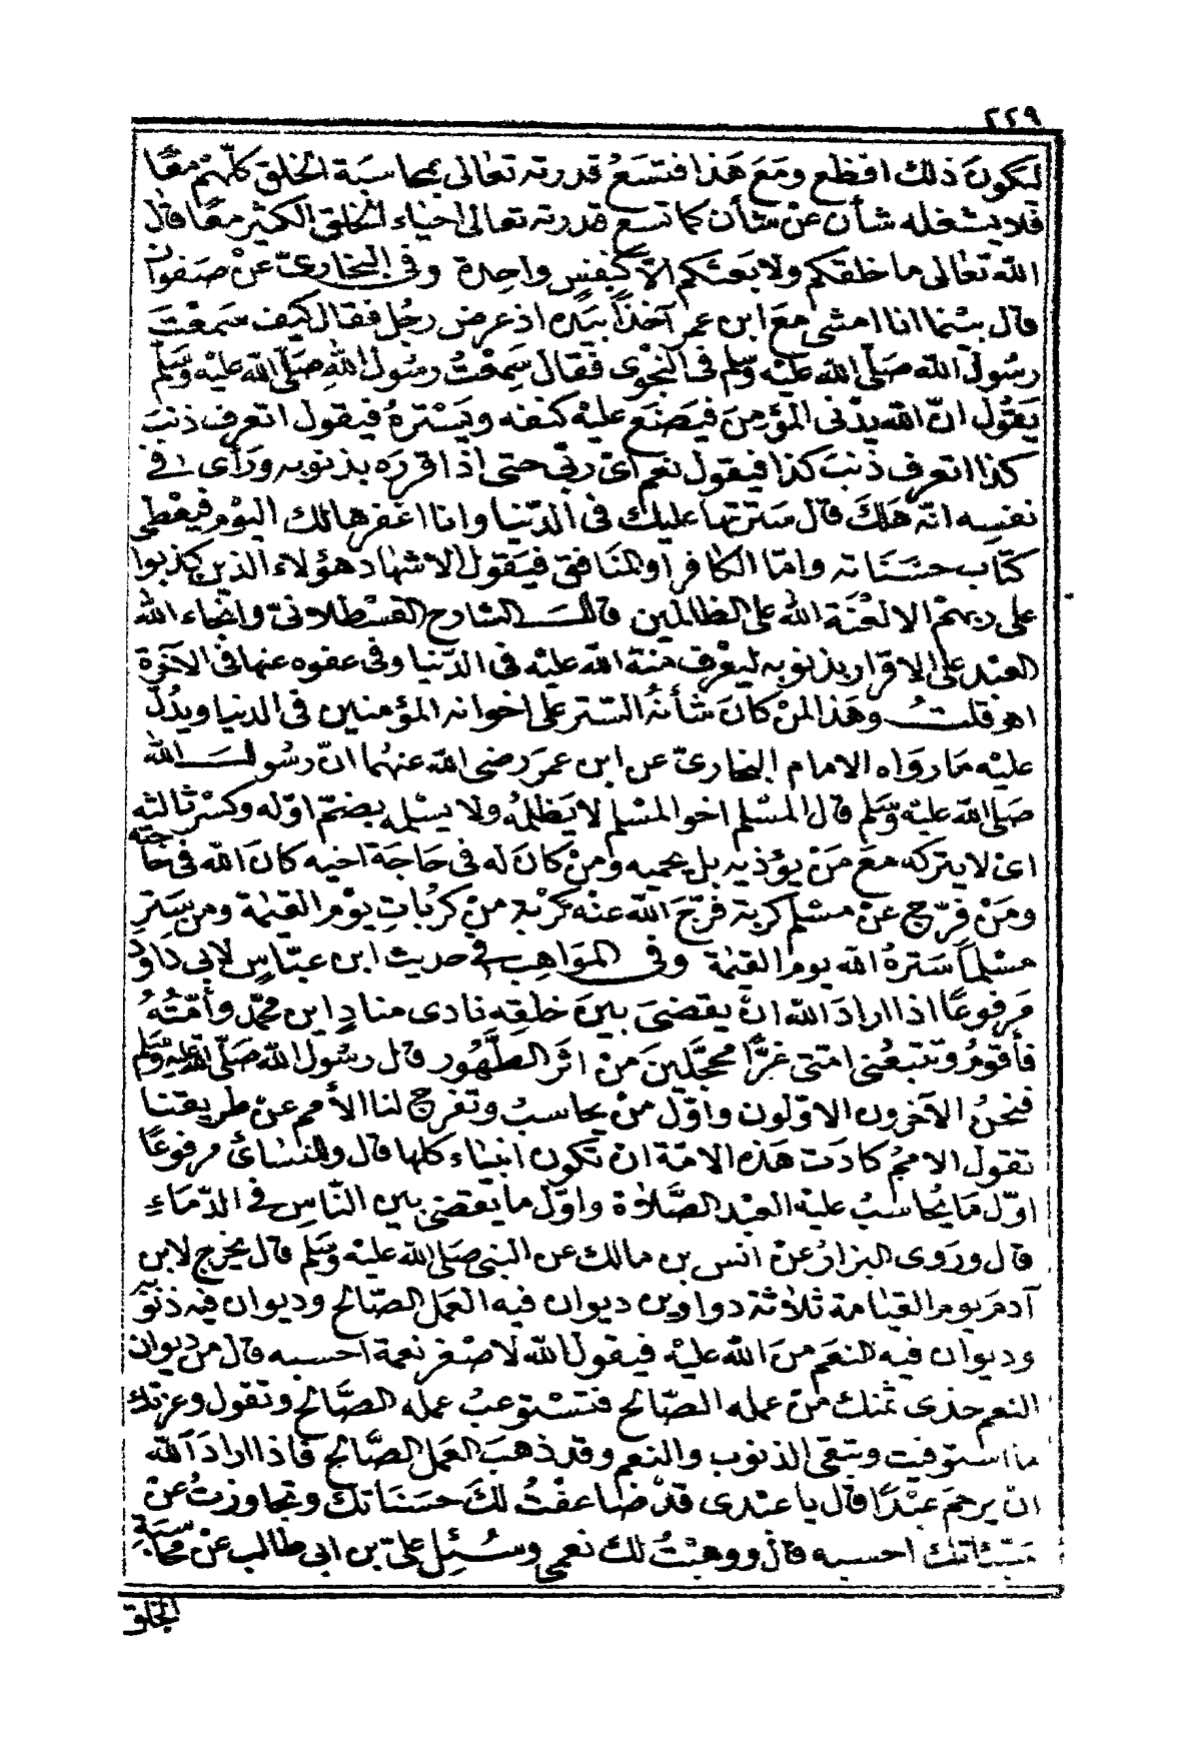 ٢٢٩
ليكونَ ذلك افظع ومَعَ هَذا فتسَعُ قدرته تعالى بمحاسَبَة الخلق كلّهمْ معًا
فلا يشغله شأن عنْ شأن كما تسع قدرته تعالى احيَاء الخلق الكثير معًا قال
الله تعالى ما خلقكم ولا بَعثكم الاّ كنفسٍ واحِدة وفى البخارىّ عنْ صَفوان
قال بيْنما انا امشى معَ ابن عمر آخذاً بيَده اذ عرض رجُل فقال كيف سَمعْتَ
رسُولَ الله صَلّى الله عليْه وسَلم فى النجْوى فقال سَمِعْتُ رسُول الله صَلّى الله عليْه وسَلم
يَقُولُ انّ الله يدْنى المؤمِنَ فيَضَع عليْه كنفه ويَسْترهُ فيقول اتعرف ذنبَ
كذا اتعرف ذنبَ كذا فيقول نعم اىْ ربّى حتى اذا قرره بذنوبه ورَأى فى
نفسِه انّه هَلكَ قال سَترتها عليك فى الدّنيا وانا اغفرها لك اليوْم فيُعْطى
كتابَ حسَنَاته وامّا الكافر او المنَافق فيَقول الاشهاد هؤلاء الذين كذبوا
على ربهمْ الا لعْنَة الله على الظالمين قالـــ الشارح القسْطلانىّ والجاء الله
العبْد على الاقرار بذنوبه ليعْرف منة الله عليْه فى الدّنيا وفى عفوه عنها فى الآخرة
اهو قلتـــُ وهَذا لمنْ كانَ شأنهُ السّتر على اخوانه المؤمنين فى الدنيا ويدُلّ
عليْه مَا روَاه الامام البخارىّ عن ابن عمَر رضى الله عنهُما انّ رسُولـــ الله
صَلى الله عليْه وسَلم قال المسْلم اخو المسْلم لا يَظلمهُ ولا يسْلمه بضمّ اوّله وكسْر ثالثه
اىْ لا يتركه معَ مَنْ يؤذيه بل يحميه ومنْ كانَ له فى حَاجَة اخيه كانَ الله فى حاجته
ومَنْ فرّج عنْ مسْلم كربة فرّجَ الله عنْه كرْبة منْ كرُباتِ يوْم القيٰمة ومن سَترِ
مسْلماً سَترهُ الله يوم القيٰمة وفى المَوَاهب فى حديث ابن عبّاسٍ لابى داود
مَرفوعًا اذا ارادَ الله انْ يقضىَ بيْنَ خلقِه نادى منادٍ اين محمّد وأمّتُهُ
فأقومُ وتتبعُنى امتى غرًّا محجّلينَ منْ اثَر الطَّهُور قال رسُول الله صَلّى الله عليْه وسَلم
فنحنُ الآخرون الاوّلون وأوّل منْ يحاسبُ وتفرج لنا الأمم عنْ طريقتنا
تقول الاممُ كادَت هَذه الامّة انْ تكون انبيَاء كلها قال وللنسَائ مرفوعًا
اوّل مَا يُحاسَبُ عليْه العبْد الصَّلاٰة واوّل ما يَقضى بين النّاسِ فى الدّمَاءِ
قال ورَوى البزارُ عنْ انس بن مالك عن النبى صَلى الله عليْه وسَلم قال يخرج لابن
آدمَ يوم القيَامة ثلاٰثة دواوين ديوان فيه العَمل الصّالح وديوان فيه ذنوبُه
وديوان فيه النعَم منَ الله عليْه فيقول الله لاصْغر نعمة احسبه قال من ديوان
النعم خذى ثمنك منْ عمله الصّالح فتسْتوعبُ عمله الصَّالح وتقول وعزتك
ما استوفيت وتبقى الذنوب والنعم وقد ذهبَ العَمل الصَّالح فاذا ارادَ الله
انْ يرحمَ عبْدًا قال يا عبْدى قدْ ضاعفْتُ لكَ حسَنَاتك وتجاوزتُ عنْ
سَيّئاتك احسبه قال ووهبْتُ لك نعمى وسُئِل علىّ بن ابى طالب عنْ محاسبَة
الخلق